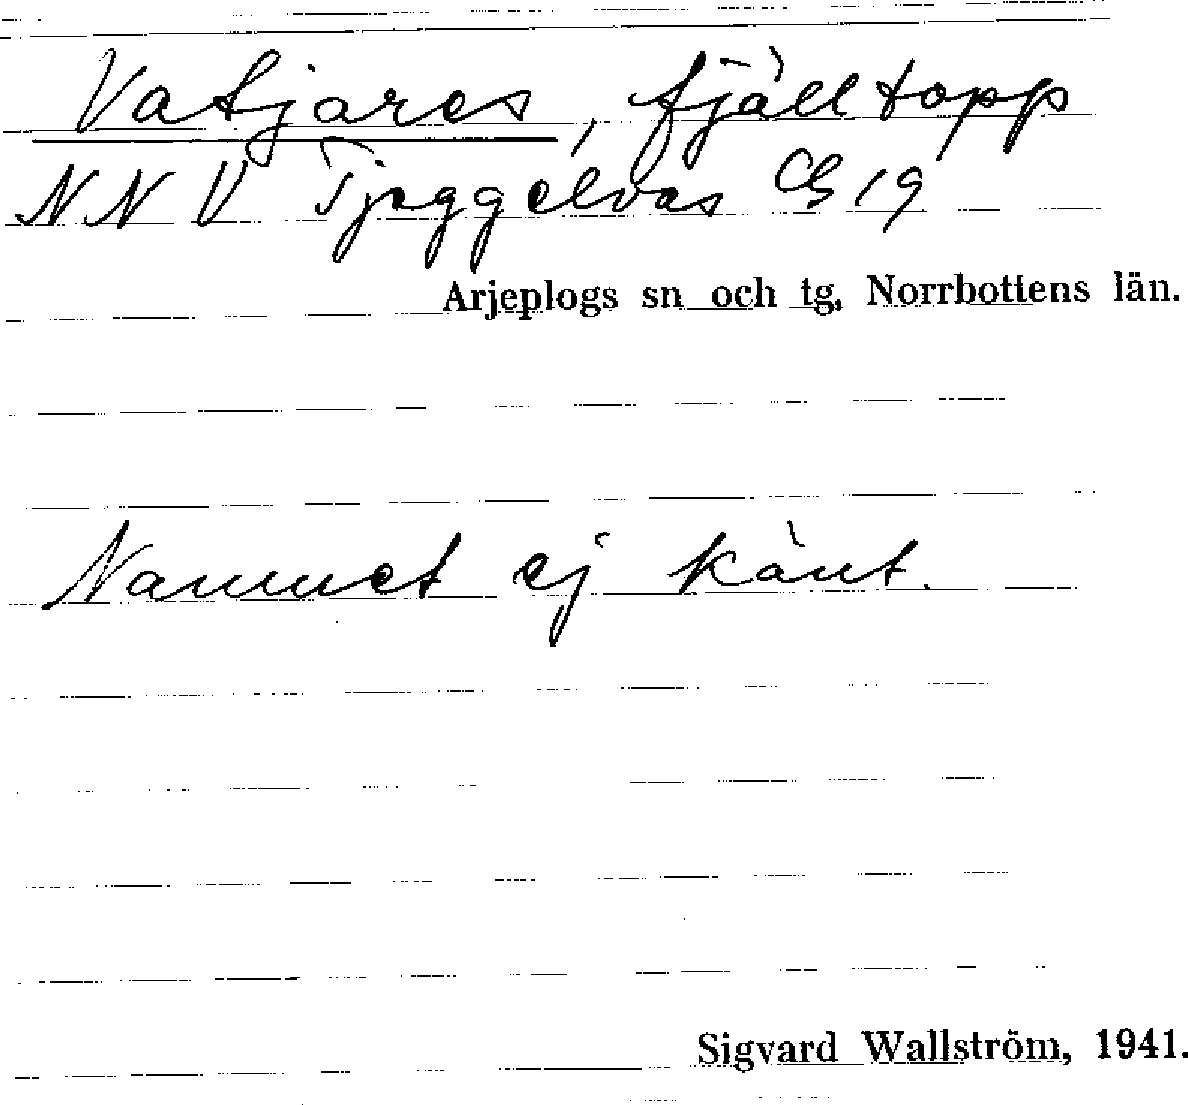 Vatjares, fjälltopp
NNV Tjeggelvas CB 19
Arjeplogs sn och tg, Norrbottens län.
Namnet ej känt.
Sigvard Wallström, 1941.